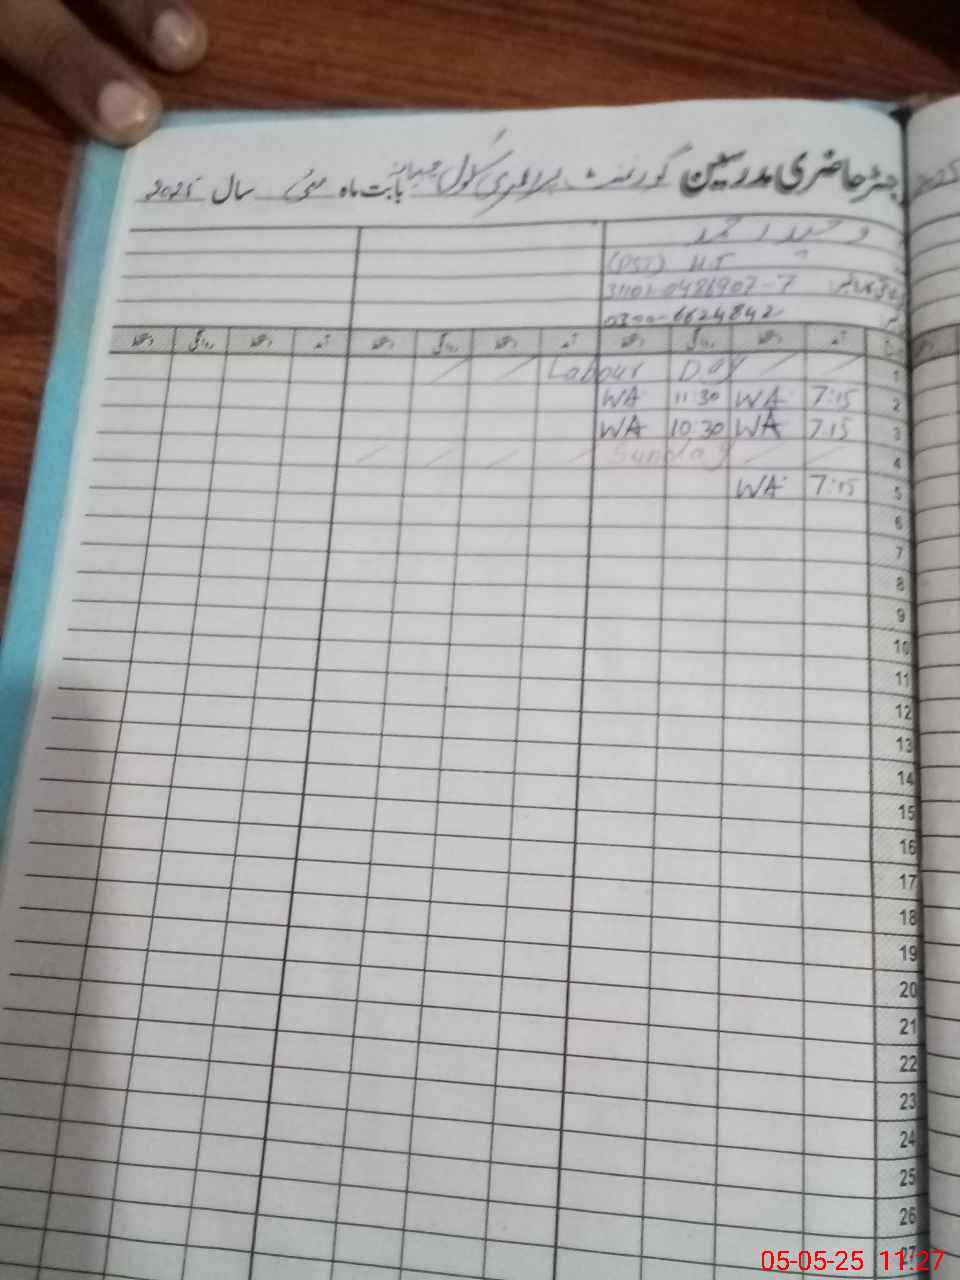 رجسٹر حاضری مدرسین گورنمنٹ پرائمری سکول بابت ماہ مئی سال 2025
وحید احمد
(PST) H.T
31101-0486907-7
0300-6624842
آمد دستخط روانگی دستخط آمد دستخط روانگی دستخط آمد دستخط روانگی دستخط
1 Labour Day
2 7:15 WA 11:30 WA
3 7:15 WA 10:30 WA
4 Sunday
5 7:15 WA
6
7
8
9
10
11
12
13
14
15
16
17
18
19
20
21
22
23
24
25
26
27
05-05-25 11:27